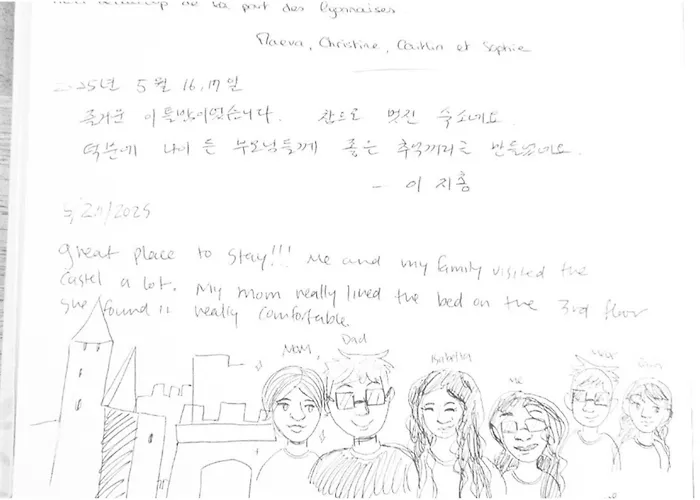 de la part des lyonnaises
Maeva, Christine, Caitlin et Sophie
2025년 5월 16, 17일
즐거운 이틀밤이었습니다. 참으로 멋진 숙소네요.
덕분에 나이 든 부모님들께 좋은 추억꺼리를 만들었네요.
- 이 지홍
2025
Great place to stay!!! Me and my family visited the
castel a lot. My mom really liked the bed on the 3rd floor
she found it really comfortable.
Mom, Dad Isabella Me